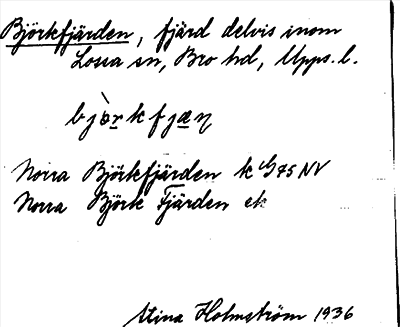 Björkfjärden, fjärd delvis inom
Lossa sn, Bro hd, Upps. l.
bjòrkfjæṇ
Norra Björkfjärden k 4/5 75 NV
Norra Björk Fjärden ek
Stina Holmström 1936